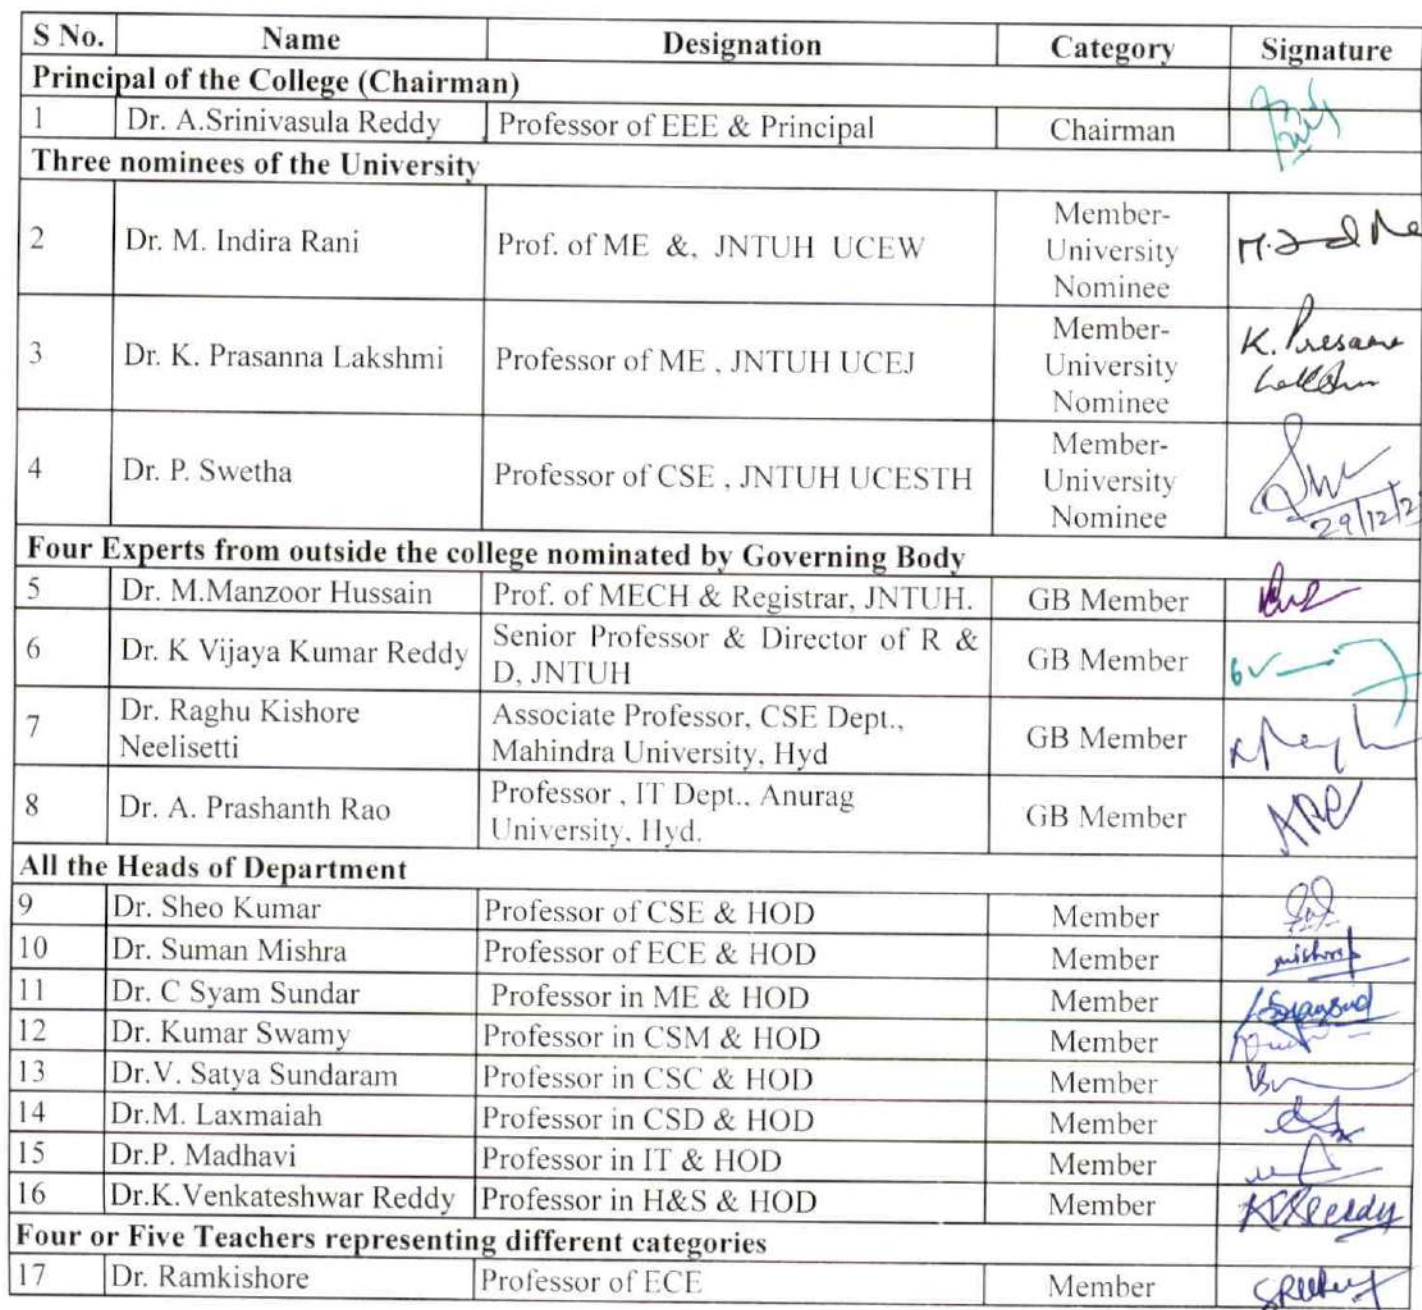 S No. Name Designation Category Signature
Principal of the College (Chairman)
1 Dr. A.Srinivasula Reddy Professor of EEE & Principal Chairman
Three nominees of the University
2 Dr. M. Indira Rani Prof. of ME &, JNTUH UCEW Member-
University
Nominee
3 Dr. K. Prasanna Lakshmi Professor of ME , JNTUH UCEJ Member-
University
Nominee
K. Prasanna
Lakshmi
4 Dr. P. Swetha Professor of CSE , JNTUH UCESTH Member-
University
Nominee
29/12/2
Four Experts from outside the college nominated by Governing Body
5 Dr. M.Manzoor Hussain Prof. of MECH & Registrar, JNTUH. GB Member
6 Dr. K Vijaya Kumar Reddy Senior Professor & Director of R &
D, JNTUH GB Member
7 Dr. Raghu Kishore
Neelisetti Associate Professor, CSE Dept.,
Mahindra University, Hyd GB Member
8 Dr. A. Prashanth Rao Professor , IT Dept., Anurag
University, Hyd. GB Member
All the Heads of Department
9 Dr. Sheo Kumar Professor of CSE & HOD Member
10 Dr. Suman Mishra Professor of ECE & HOD Member
11 Dr. C Syam Sundar Professor in ME & HOD Member
12 Dr. Kumar Swamy Professor in CSM & HOD Member
13 Dr.V. Satya Sundaram Professor in CSC & HOD Member
14 Dr.M. Laxmaiah Professor in CSD & HOD Member
15 Dr.P. Madhavi Professor in IT & HOD Member
16 Dr.K.Venkateshwar Reddy Professor in H&S & HOD Member KVReddy
Four or Five Teachers representing different categories
17 Dr. Ramkishore Professor of ECE Member